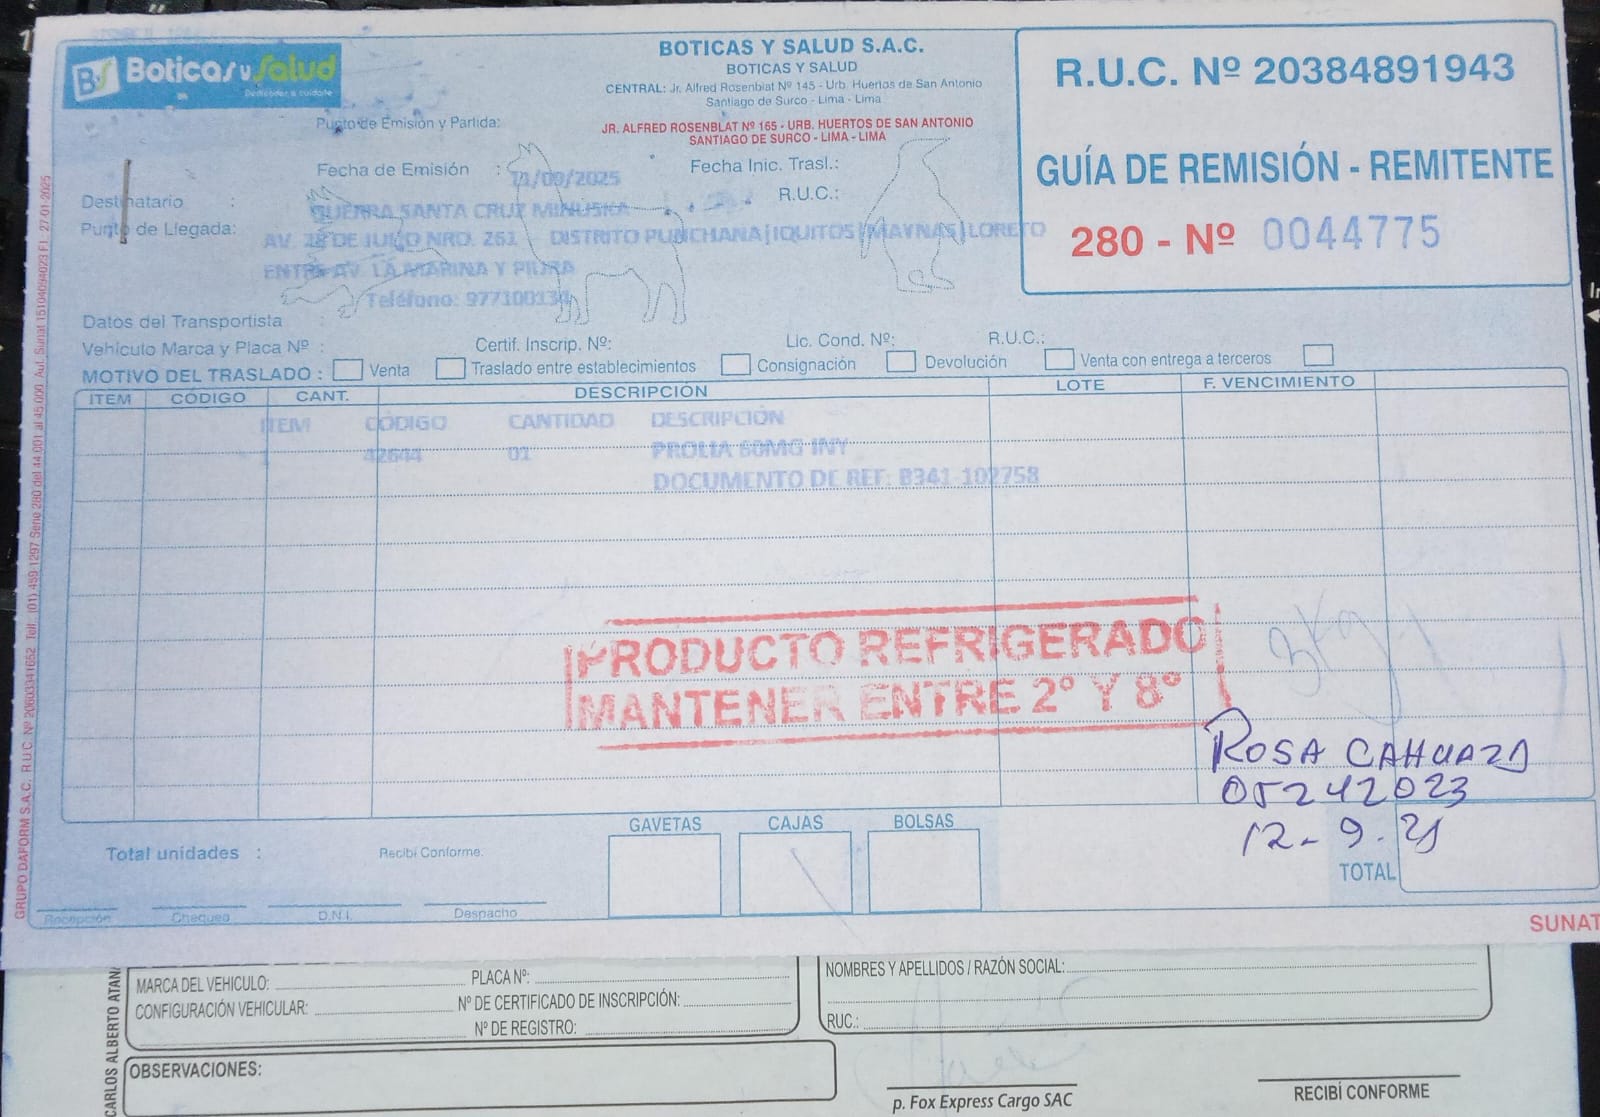 Boticas y Salud
Dedicados a cuidarte
BOTICAS Y SALUD S.A.C.
BOTICAS Y SALUD
CENTRAL: Jr. Alfred Rosenblat Nº 145 - Urb. Huertos de San Antonio
Santiago de Surco - Lima - Lima
Punto de Emisión y Partida:
JR. ALFRED ROSENBLAT Nº 165 - URB. HUERTOS DE SAN ANTONIO
SANTIAGO DE SURCO - LIMA - LIMA
R.U.C. Nº 20384891943
GUÍA DE REMISIÓN - REMITENTE
280 - Nº 0044775
Fecha de Emisión : 11/09/2025 Fecha Inic. Trasl.:
R.U.C.:
Destinatario : GUERRA SANTA CRUZ MINUSKA
Punto de Llegada: AV. 28 DE JULIO NRO. 261 - DISTRITO PUNCHANA|IQUITOS|MAYNAS|LORETO
ENTRE AV. LA MARINA Y PIURA
Teléfono: 977100134
Datos del Transportista :
Vehículo Marca y Placa Nº : Certif. Inscrip. Nº: Lic. Cond. Nº: R.U.C.:
MOTIVO DEL TRASLADO : Venta Traslado entre establecimientos Consignación Devolución Venta con entrega a terceros
ITEM CÓDIGO CANT. DESCRIPCIÓN LOTE F. VENCIMIENTO
ITEM CODIGO CANTIDAD DESCRIPCIÓN
1 42644 01 PROLIA 60MG INY
DOCUMENTO DE REF: B341-102758
PRODUCTO REFRIGERADO
MANTENER ENTRE 2° Y 8°
3kg
ROSA CAHUAZA
05242023
12-9-25
GAVETAS CAJAS BOLSAS
Total unidades : Recibí Conforme.
TOTAL
Recepción Chequeo D.N.I. Despacho
SUNAT
GRUPO DAFORM S.A.C. R.U.C. Nº 20603341652 Telf.: (01) 459-1297 Serie 280 del 44,001 al 45,000 Aut. Sunat 15104094023 F.I. 27-01-2025
CARLOS ALBERTO ATAN
MARCA DEL VEHICULO: PLACA Nº:
CONFIGURACIÓN VEHICULAR: Nº DE CERTIFICADO DE INSCRIPCIÓN:
Nº DE REGISTRO:
NOMBRES Y APELLIDOS / RAZÓN SOCIAL:
RUC.:
OBSERVACIONES:
p. Fox Express Cargo SAC
RECIBÍ CONFORME